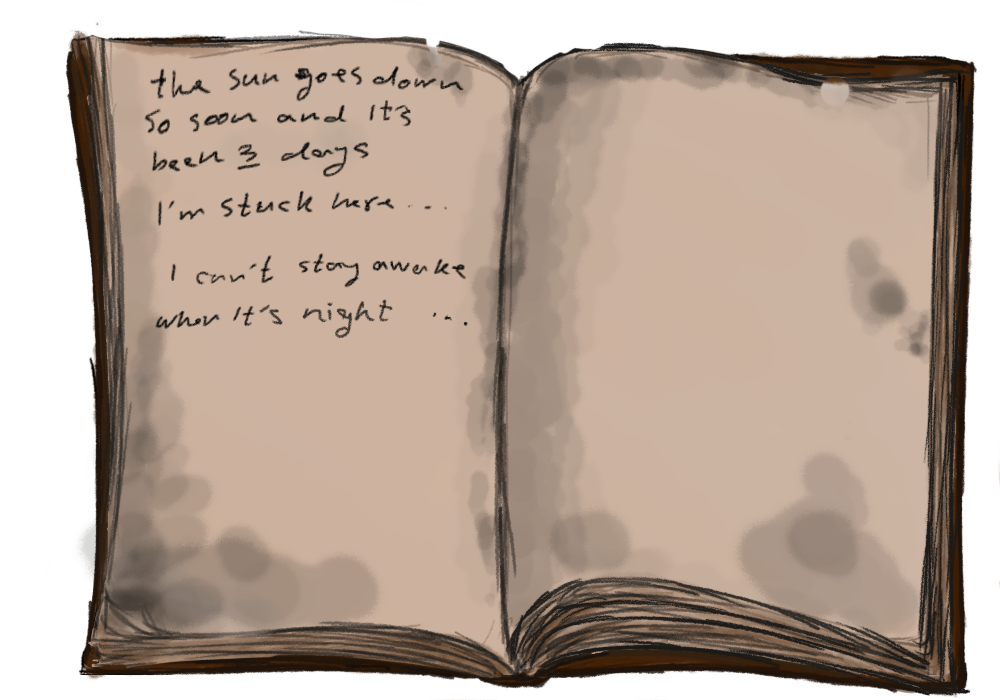 the sun goes down
so soon and It's
been 3 days
I'm stuck here ...
I can't stay awake
when It's night ...